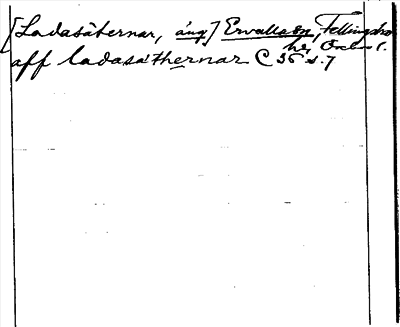 [Ladasäternar, äng] Ervalla sn, Fellingsbro
hd, Örebro l.
aff ladasäthernar C 35 s. 7